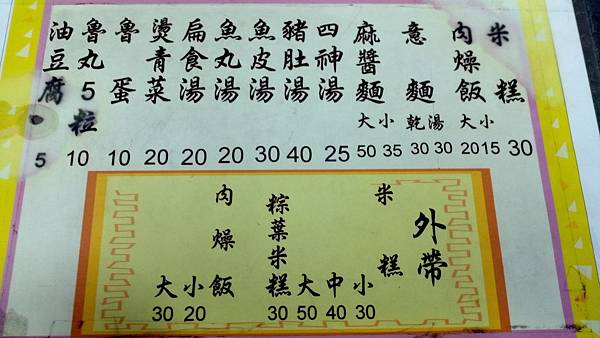 米糕 30
肉燥飯 大小 2015
意麵 乾湯 30 30
麻醬麵 大小 50 35
四神湯 25
豬肚湯 40
魚皮湯 30
魚丸湯 20
扁食湯 20
燙青菜 20
魯蛋 10
魯丸5粒 10
油豆腐 5
外帶
米糕 大中小 50 40 30
粽葉米糕 30
肉燥飯 大小 30 20